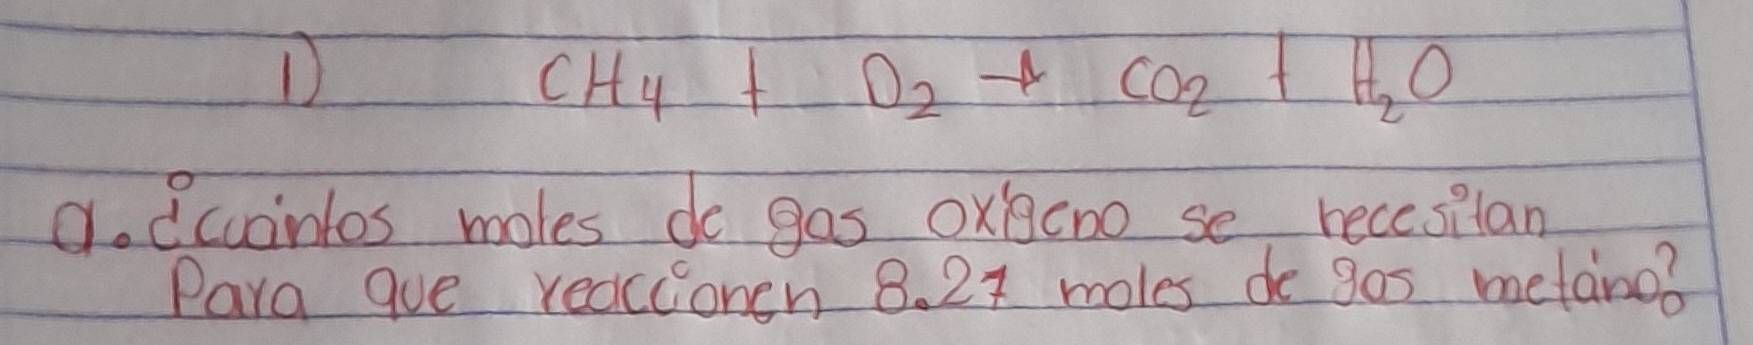 1) CH4 + O2 → CO2 + H2O
a. ¿cuántos moles de gas oxígeno se necesitan
Para que reaccionen 8.27 moles de gas metáno?